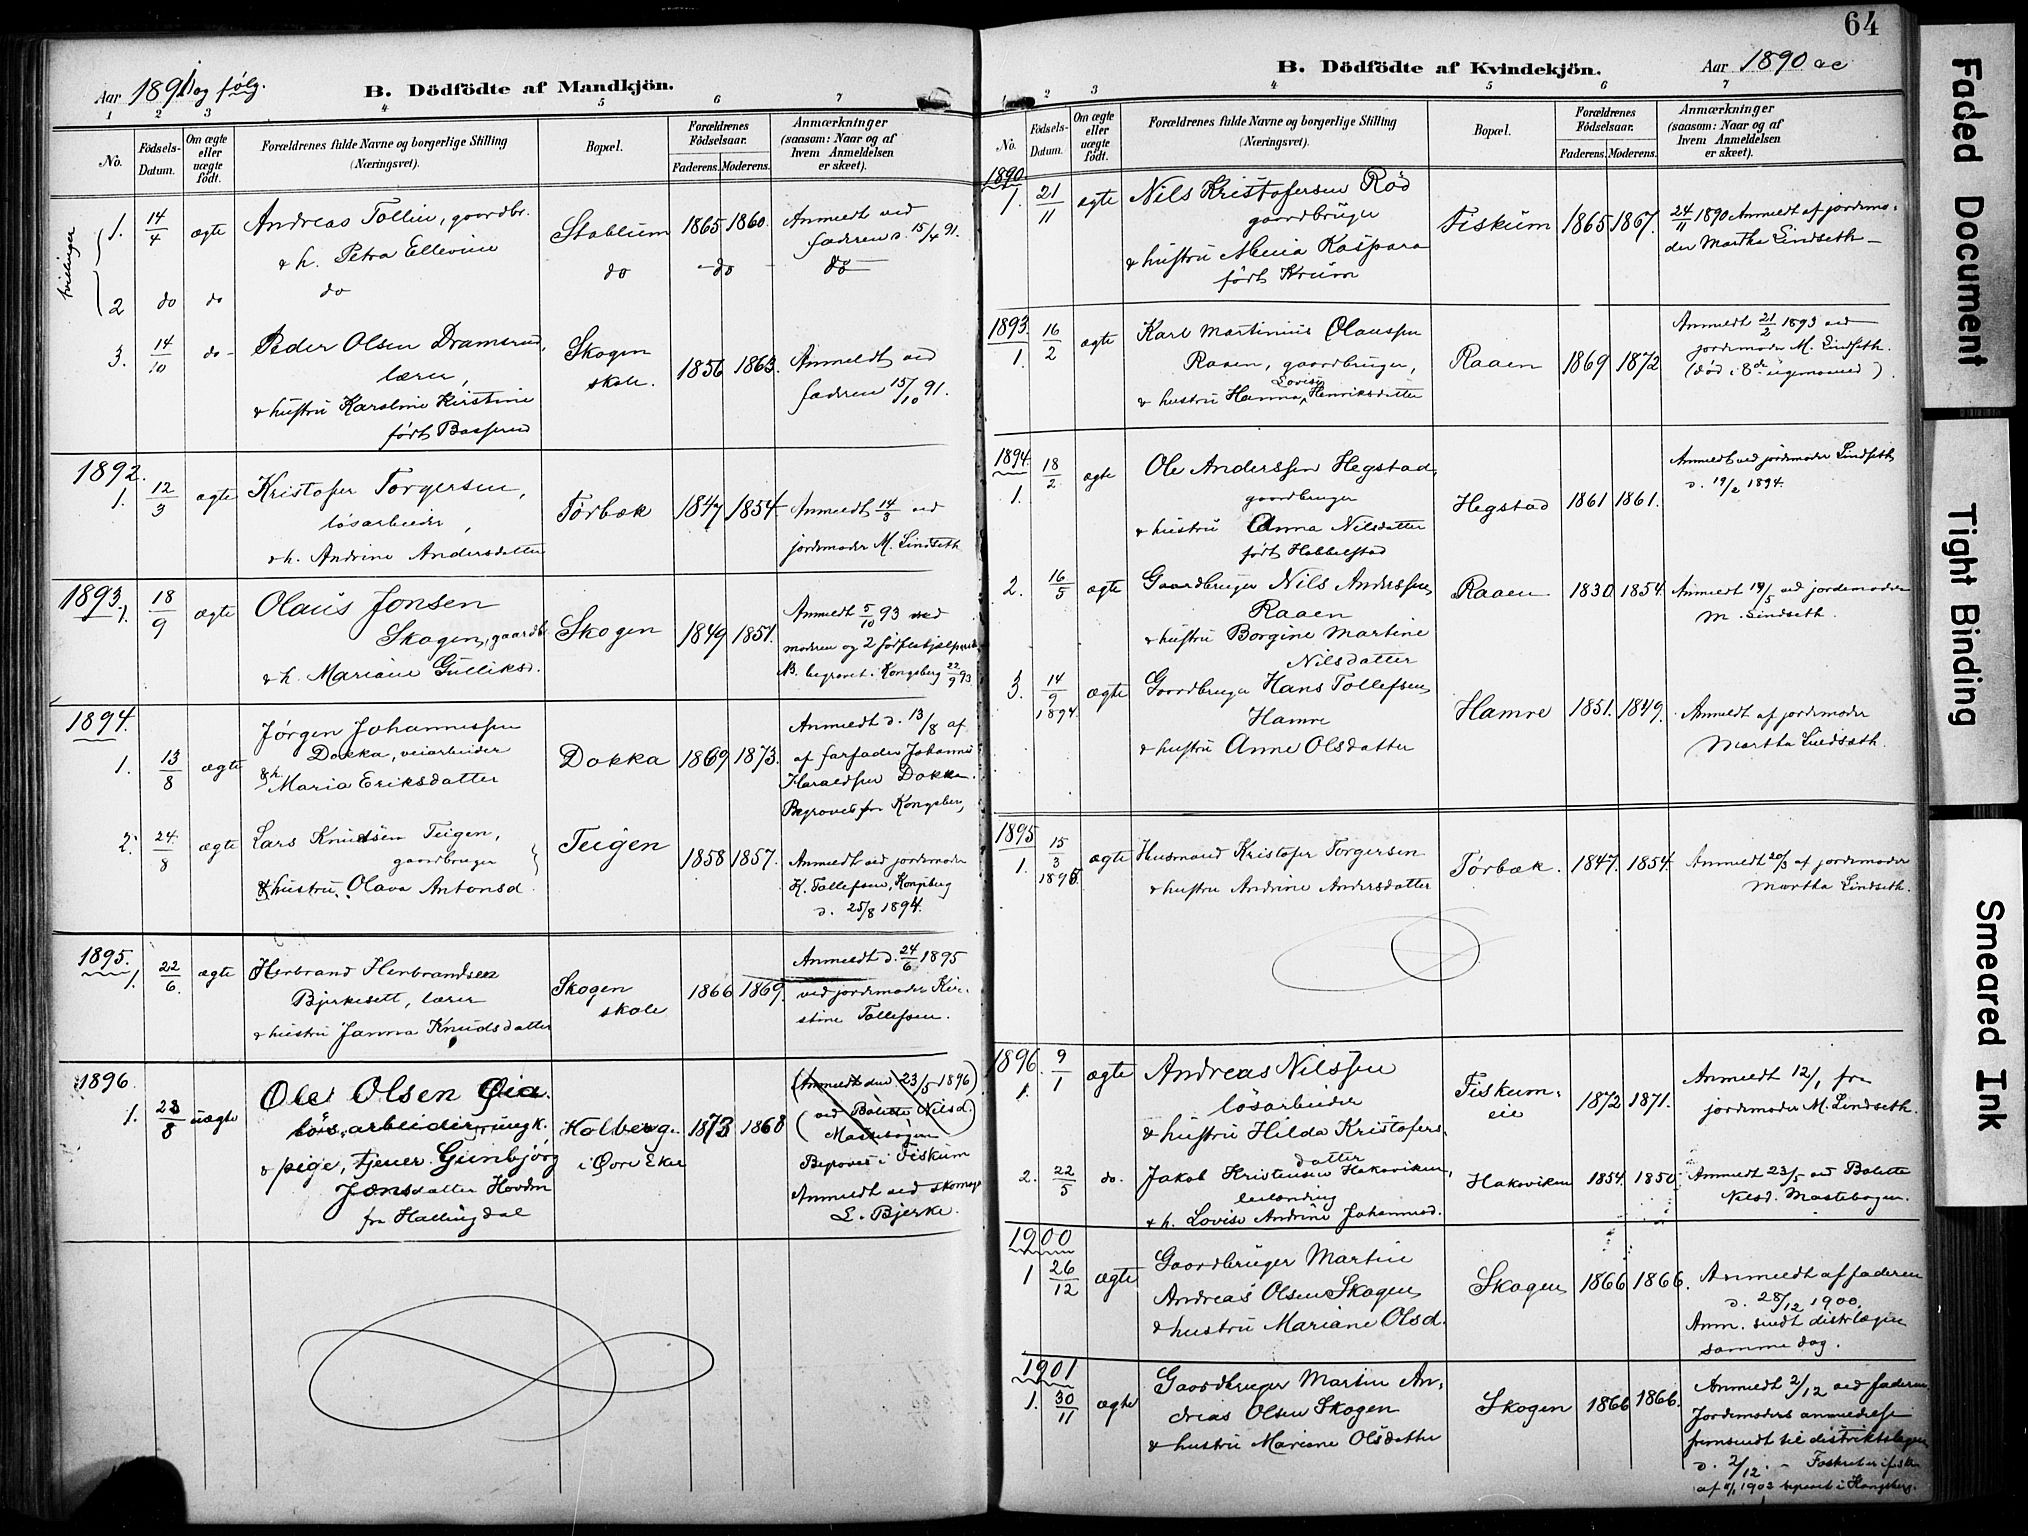 64
Aar 1891 og følg.
B. Dödfödte af Mandkjön.
1 2 3 4 5 6 7
No.
Födsels-Datum.
Om ægte eller uægte födt.
Forældrenes fulde Navne og borgerlige Stilling
(Næringsvei).
Bopæl.
Forældrenes Födselsaar.
Faderens. Moderens.
Anmærkninger
(saasom: Naar og af
hvem Anmeldelsen
er skeet).
tvillinger
1. 14/4 ægte Andreas Tollin, gaardbr. Stablum 1865 1860. Anmeldt ved
& h. Petra Ellevine faderen d. 15/4 91.
2 do do do do do do
3. 14/10 do Peder Olsen Dramsrud, Skogen 1856 1863. Anmeldt ved
lærer, skole. faderen 15/10 91.
& hustru Karoline Kirstine
født Basserud
1892.
1. 12/3 ægte Kristofer Torgersen, Tørbæk 1847 1854. Anmeldt 14/3 ved
løsarbeider, jordemoder M. Lindseth
& h. Andrine Andersdatter
1893.
1. 18/9 ægte Olaus Jonsen
Skogen, gaardb. Skogen 1849 1851. Anmeldt 5/10 93 ved
& h. Mariane Gulliksd. moderen og 2
NB. begravet i Kongsberg 22/9 93
1894.
Jørgen Johannessen Anmeldt d. 13/8 af
1. 13/8 ægte Dokka, veiarbeider Dokka 1869 1873. af farfader Johannes
& h. Maria Eriksdatter Haraldsen Dokka.
Begraves fra Kongsberg
2. 24/8 ægte Lars Knudsen Teigen, Teigen 1858 1857. Anmeldt ved jordemoder
gaardbruger K. Tollefsen, Kongsberg
& hustru Olava Antonsd. d. 25/8 1894.
1895.
1. 22/6. ægte Herbrand Herbrandsen Skogen 1866 1869. Anmeldt d. 24/6 1895
Bjerkesett, lærer skole ved jordemoder Kir-
& hustru Janna Knudsdatter stine Tollefsen.
1896
1. 23/8 uægte Ole Olsen Øia. Holberg 1873 1868 (Anmeldt den 23/5 1896)
løsarbeider, ungk. i Øvre Eker (ved Bolette Nilsd.
& pige, tjener Gunbjørg Mastebogen)
Jonsdatter Hovdn Begraves i Fiskum
fra Hallingdal Anmeldt ved skomager
L. Bjerke.
Aar 1890 ac
B. Dödfödte af Kvindekjön.
1 2 3 4 5 6 7
No.
Födsels-Datum.
Om ægte eller uægte födt.
Forældrenes fulde Navne og borgerlige Stilling
(Næringsvei).
Bopæl.
Forældrenes Födselsaar.
Faderens. Moderens.
Anmærkninger
(saasom: Naar og af
hvem Anmeldelsen
er skeet).
1890
1. 21/11 ægte Nils Kristofersen Rød Fiskum 1865 1867. 24/11 1890 Anmeldt af jordemo-
gaardbruger der Martha Lindseth
& hustru Kaspara
født Krum
1893.
1. 16/2 ægte Karl Martinius Olaussen Raaen 1869 1872 Anmeldt 21/2 1893 ved
Raaen, gaardbruger, jordemoder M. Lindseth.
& hustru Hanna Lovise Henriksdatter (død i 8de
1894
1. 18/2 ægte Ole Anderssen Hegstad, Hegstad 1861 1861. Anmeldt ved jordemoder Lindseth
gaardbruger d. 19/2 1894.
& hustru Anna Nilsdatter
født Hobbelstad
2. 16/5 ægte Gaardbruger Nils Anderssen Raaen 1830 1854. Anmeldt 19/5 ved jordemoder
Raaen M. Lindseth.
& hustru Borgine Martine
Nilsdatter
3. 14/9 1894 ægte Gaardbruger Hans Tollefsen Hamre 1851. 1849. Anmeldt af jordemoder
Hamre Martha Lindseth.
& hustru Anne Olsdatter
1895
1. 15/3 1895. ægte Husmand Kristofer Torgersen Tørbæk. 1847. 1854. Anmeldt 20/3 af jordemoder
& hustru Andrine Andersdatter Martha Lindseth.
1896.
1. 9/1 ægte Andreas Nilssen Fiskum- 1872 1871. Anmeldt 12/1 fra
løsarbeider eie jordemoder M. Lindseth.
& hustru Hilda Kristofers-
datter
2. 22/5 do. Jakob Kristensen Hakaviken, Hakaviken 1854. 1850. Anmeldt 23/5 ved Bolette
leilending Nilsd. Mastebogen.
& h. Lovise Andrine Johannesd.
1900
1 26/12 ægte Gaardbruger Martin Skogen 1866 1866. Anmeldt af faderen
Andreas Olsen Skogen d. 28/12 1900.
& hustru Mariane Olsd. Anm. sendt distrlægen
samme dag.
1901
1. 30/11 ægte Gaardbruger Martin An- Skogen 1866 1866. Anmeldt 2/12 ved faderen,
dreas Olsen Skogen Jordemoders anmeldelse
& hustru Mariane Olsdatter fremsendt til distriktslægen
d. 2/12.
af 1902 begravet i Kongsberg.
Faded Document
Tight Binding
Smeared Ink